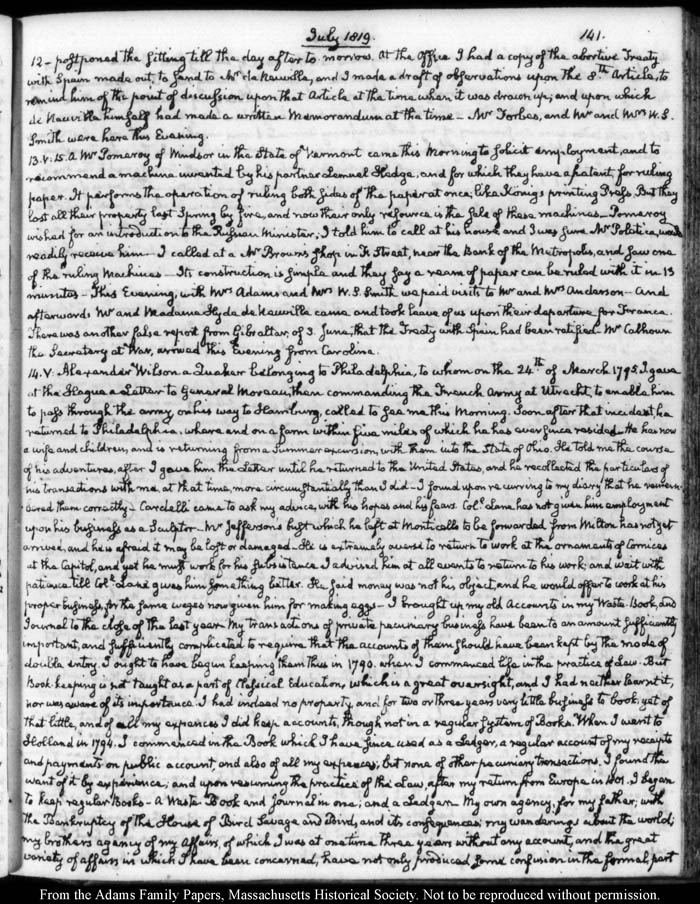 July 1819.
141.
12 – postponed the sitting till the day after to morrow. At the Office I had a copy of the abortive Treaty
with Spain made out, to send to Mr de Neuville, and I made a draft of observations upon the 8th Article, to
remind him of the point of discussion upon that Article at the time when it was drawn up; and upon which
de Neuville himself had made a written Memorandum at the time – Mr Forbes, and Mr and Mrs W. S.
Smith were here this Evening.
13. V. 15. A Mr Pomeroy of Windsor in the State of Vermont came this Morning to solicit employment, and to
recommend a machine invented by his partner Lemuel Hedge, and for which they have a patent, for ruling
paper. It performs the operation of ruling both sides of the paper at once, like Konig's printing Press. But they
lost all their property last Spring by fire, and now their only resource is the sale of these machines – Pomeroy
wished for an introduction to the Russian Minister; I told him to call at his house, and I was sure Mr Politica, would
readily receive him – I called at a Mr Brown's shop in F. Street, near the Bank of the Metropolis, and saw one
of the ruling Machines – Its construction is simple and they say a ream of paper can be ruled with it in 13
minutes – This Evening, with Mrs Adams and Mrs W. S. Smith we paid visits to Mr and Mrs Anderson – And
afterwards Mr and Madame Hyde de Neuville came and took leave of us upon their departure for France.
There was another false report from Gibraltar, of 3. June, that the Treaty with Spain had been ratified. Mr Calhoun
the Secretary at War, arrived this Evening from Carolina.
14. V. Alexander Wilson a Quaker belonging to Philadelphia, to whom on the 24th of March 1795. I gave
at the Hague a Letter to General Moreau, then commanding the French Army at Utrecht, to enable him
to pass through the army, on his way to Hamburg, called to see me this Morning. Soon after that incident, he
returned to Philadelphia, where and on a farm within five miles of which he has ever since resided. He has now
a wife and children, and is returning from a Summer excursion, with them into the State of Ohio. He told me the course
of his adventures, after I gave him the Letter until he returned to the United States, and he recollected the particulars of
his transactions with me at that time, more circumstantially than I did – I found upon recurring to my diary that he remem-
bered them correctly – Cardelli came to ask my advice, with his hopes and his fears. Col. Lane has not given him employment
upon his business as a Sculptor – Mr Jefferson's bust which he left at Monticello to be forwarded from Milton has not yet
arrived, and he is afraid it may be lost or damaged – He is extremely averse to return to work at the ornaments of Cornices
at the Capitol, and yet he must work for his subsistence. I advised him at all events to return to his work; and wait with
patience till Col. Lane gives him something better. He said money was not his object, and he would offer to work at his
proper business, for the same wages now given him for making eggs – I brought up my old Accounts in my Waste-Book, and
Journal to the close of the last year. My transactions of private pecuniary business have been to an amount sufficiently
important, and sufficiently complicated to require that the accounts of them should have been kept by the mode of
double entry. I ought to have begun keeping them thus in 1790. when I commenced life in the practice of Law. But
Book-keeping is not taught as a part of Classical Education, which is a great oversight, and I had neither learnt it,
nor was aware of its importance. I had indeed no property, and for two or three years very little business to book; yet of
that little, and of all my expences I did keep accounts, though not in a regular System of Books. When I went to
Holland in 1794. I commenced in the Book which I have since used as a Ledger, a regular account of my receipts
and payments on public account and also of all my expences; but none of other pecuniary transactions. I found the
want of it by experience; and upon resuming the practice of the Law, after my return from Europe in 1801. I began
to keep regular Books – A Waste Book and Journal in one; and a Ledger. My own agency, for my father; with
the Bankruptcy of the House of Bird Savage and Bird, and its consequences; my wanderings about the world;
my brother's agency of my affairs, of which I was at one time three years without any account, and the great
variety of affairs in which I have been concerned, have not only produced some confusion in the formal part
From the Adams Family Papers, Massachusetts Historical Society. Not to be reproduced without permission.